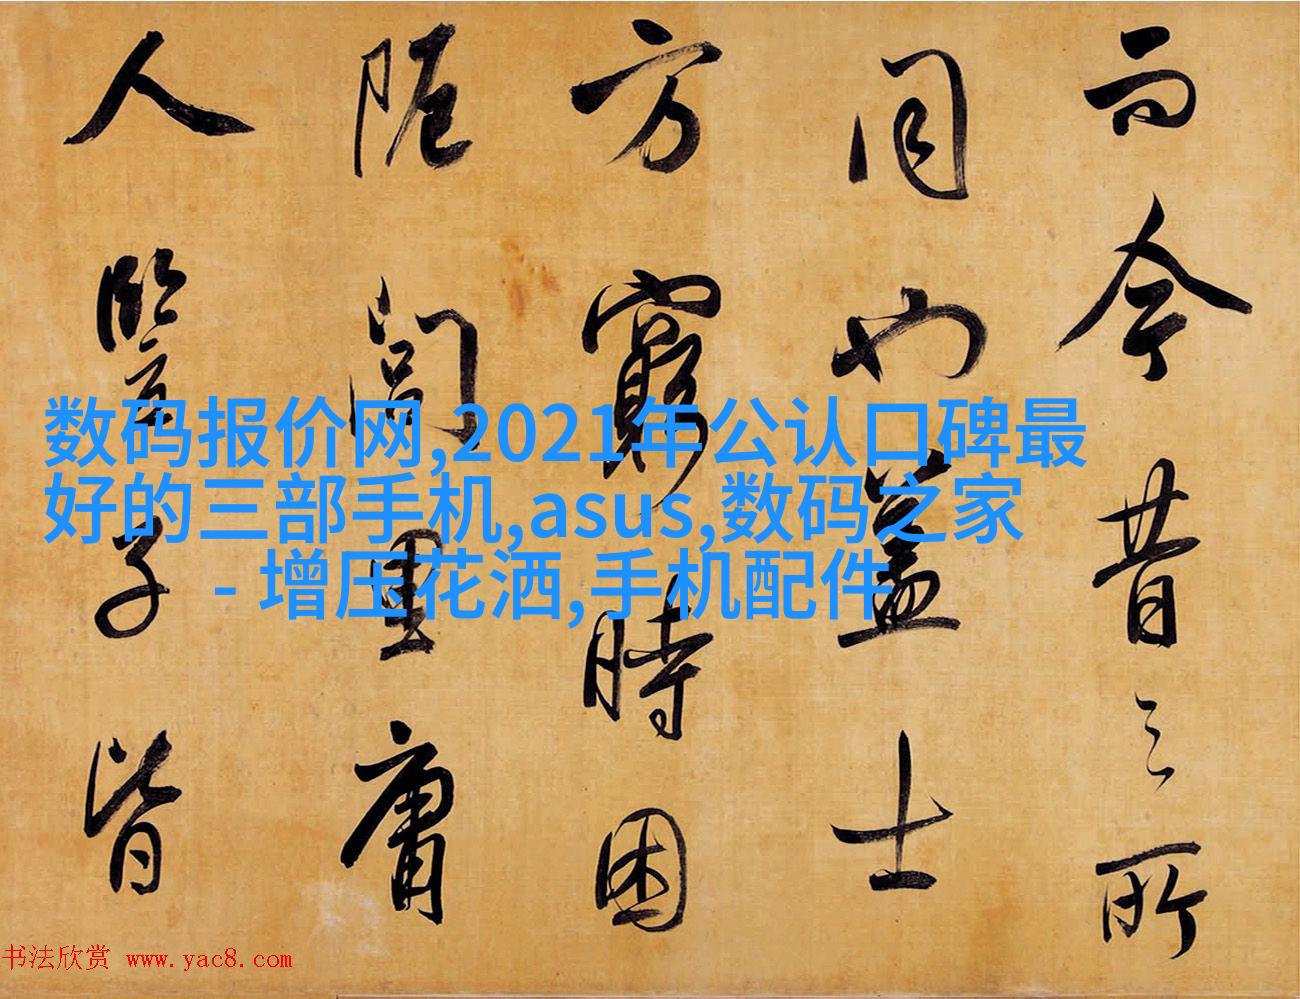 而今昔之所
同也蓋士
方窮時困
阨閭里庸
人豎子皆
数码报价网,2021年公认口碑最
好的三部手机,asus,数码之家
- 增压花洒,手机配件
书法欣赏 www.yac8.com